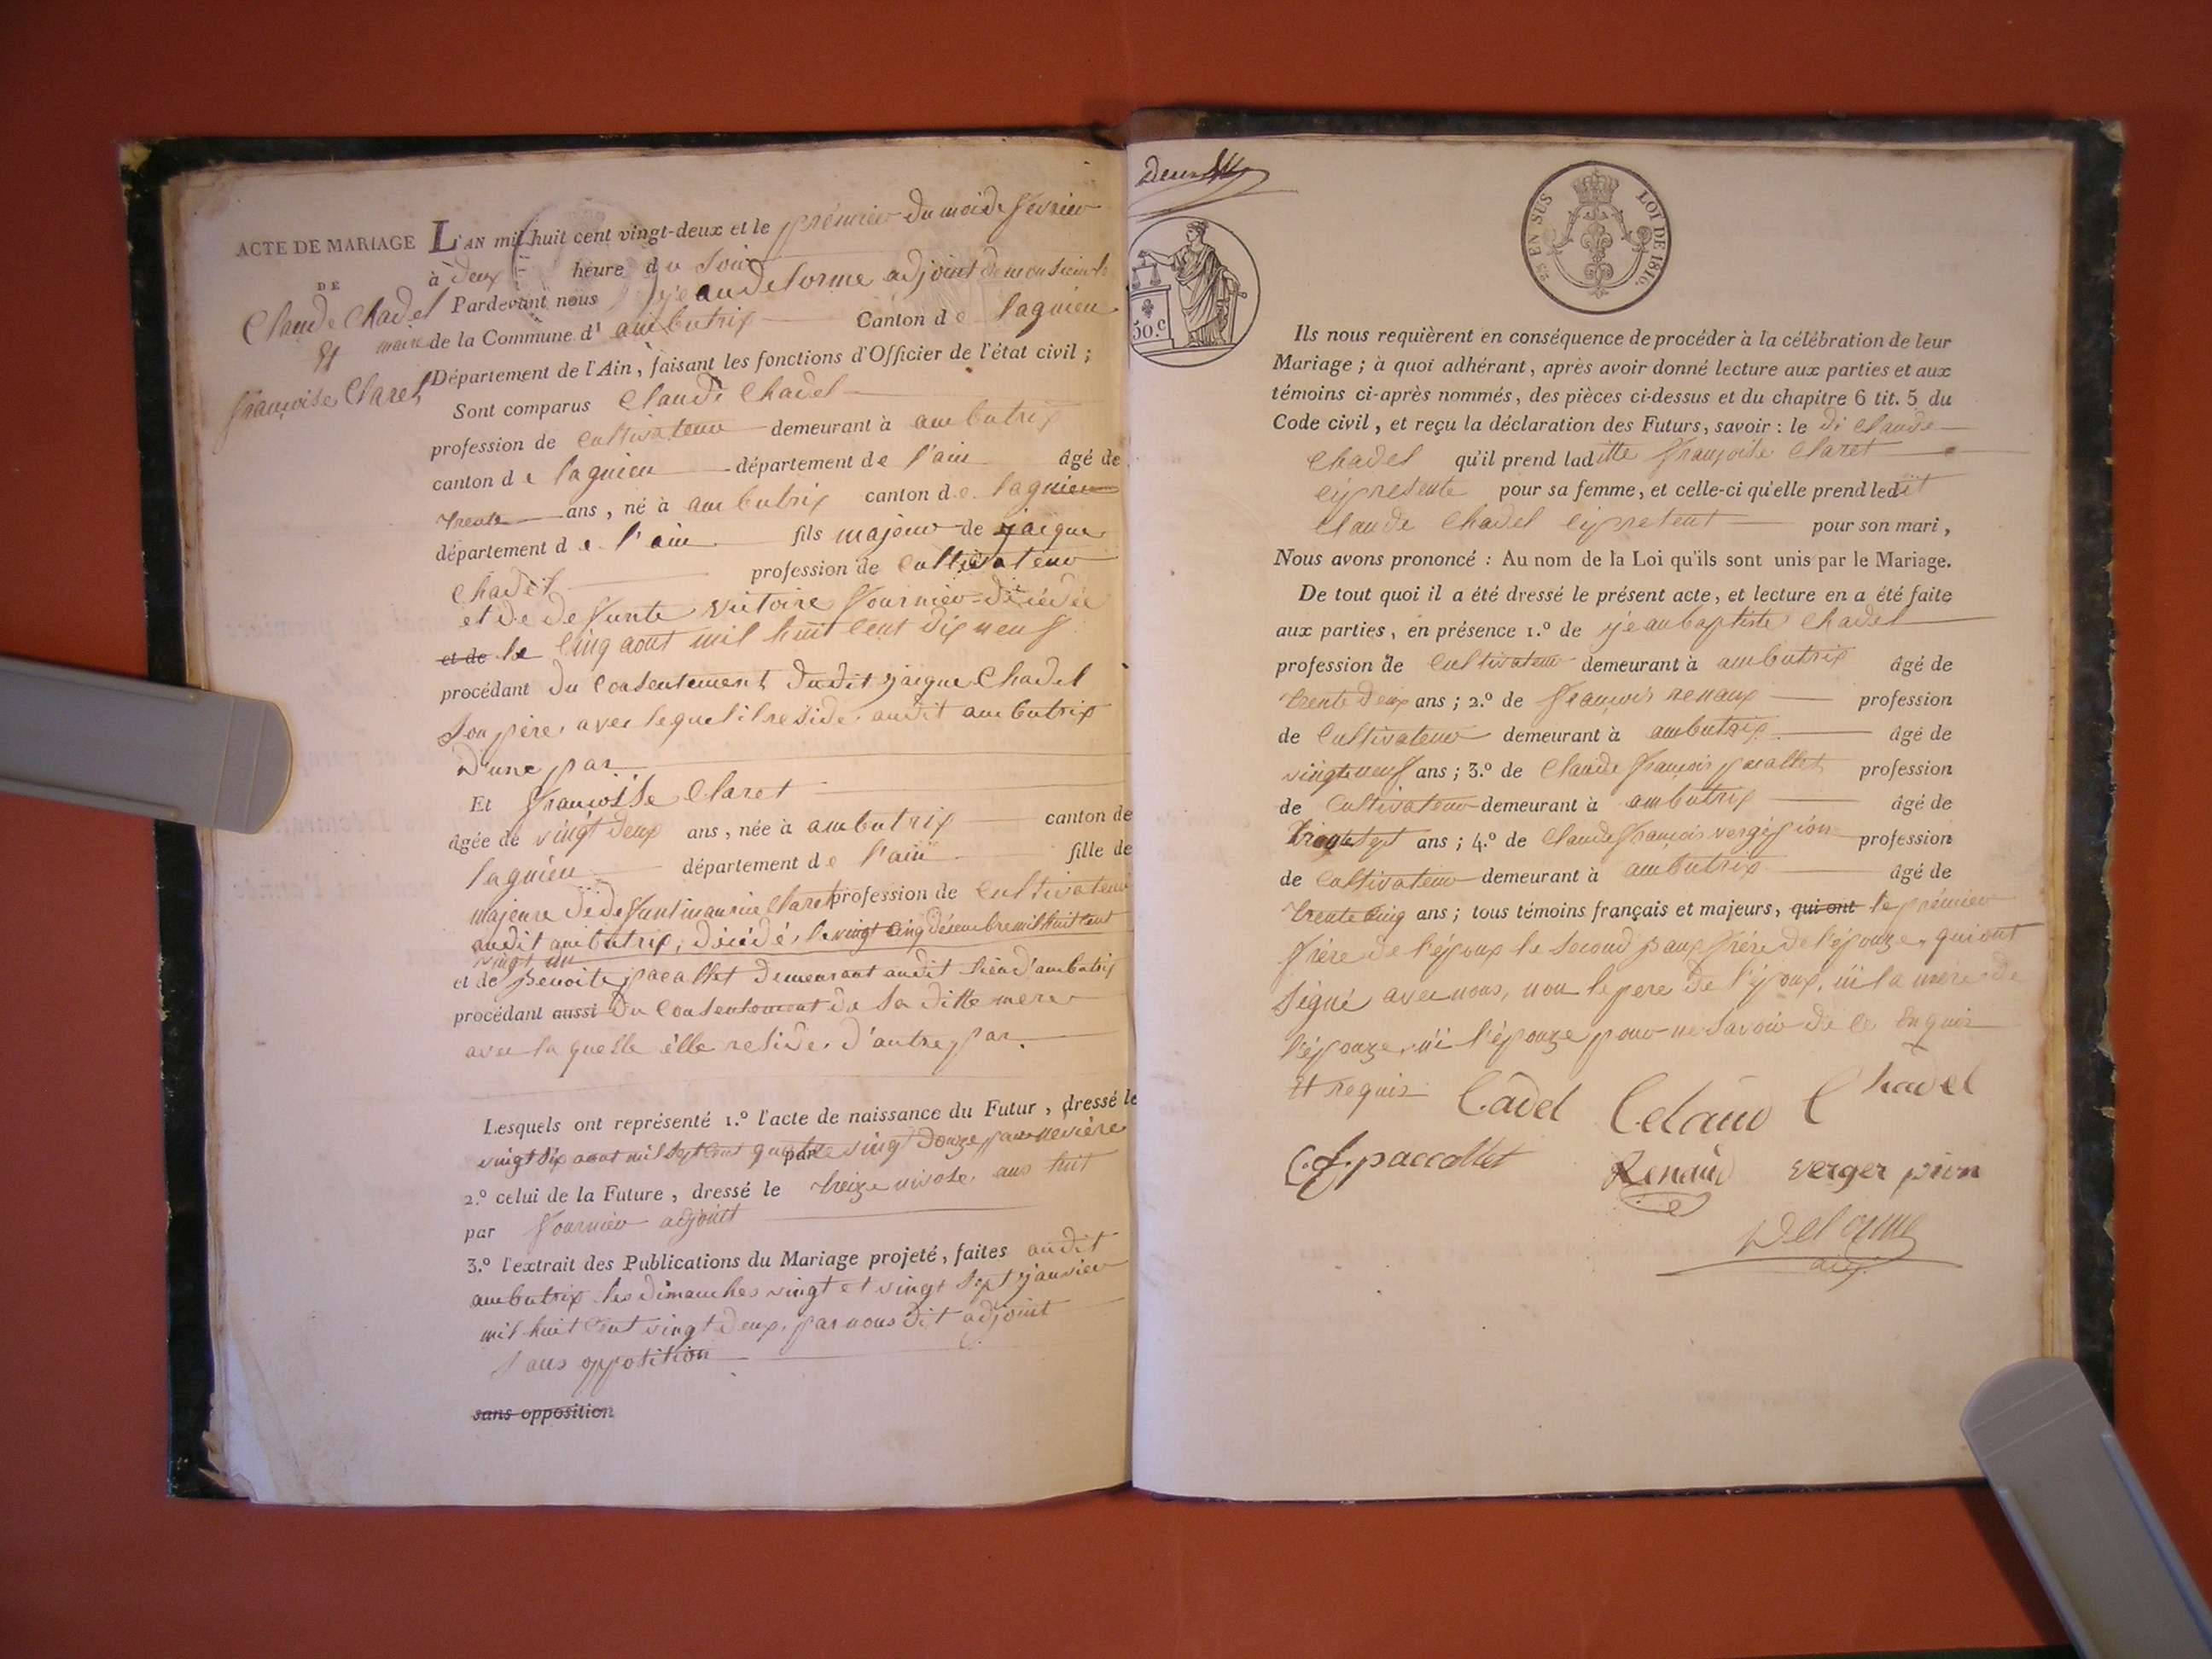 ACTE DE MARIAGE
DE
Claude Chadel
Et
françoise Claret
L'AN mil huit cent vingt-deux et le prémier du moi de fevrier
à deux heure du Soir
Pardevant nous jean delorme adjoint de monsieur le
maire de la Commune d' ambutrix Canton de lagnieu
Département de l'Ain, faisant les fonctions d'Officier de l'état civil ;
Sont comparus Claude Chadel
profession de Cultivateur demeurant à ambutrix
canton de lagnieu département de l'ain âgé de
trente ans, né à ambutrix canton de lagnieu
département de l'ain fils majeur de jacque
Chadel profession de Cultivateur
et de defunte victoire fournier décédée
et de le Cinq aout mil huit Cent dix neuf
procédant du Consentement dudit jacque Chadel
Son père, avec lequel il reside audit ambutrix
D'une par
Et françoise Claret
âgée de vingt deux ans, née à ambutrix canton de
lagnieu département de l'ain fille de
majeure de defunt maurice Claret profession de Cultivateur
audit ambutrix, décédé le vingt cinq désembre mil huit cent
vingt un
et de Benoite pacallet demeurant audit lieu d'ambutrix
procédant aussi du Consentement de Sa ditte mere
avec la quelle élle reside, d'autre par.
Lesquels ont représenté 1.º l'acte de naissance du Futur, dressé le
vingt six aout mil sept cent quatre vingt douze par neviére
par
2.º celui de la Future, dressé le treize nivose, ans huit
par fournier adjoint
3.º l'extrait des Publications du Mariage projeté, faites audit
ambutrix les dimanches vingt et vingt sept janvier
mil huit Cent vingt deux, par nous dit adjoint
Sans opposition
sans opposition
deux
50.c
25 EN SUS LOI DE 1816.
Ils nous requièrent en conséquence de procéder à la célébration de leur
Mariage ; à quoi adhérant, après avoir donné lecture aux parties et aux
témoins ci-après nommés, des pièces ci-dessus et du chapitre 6 tit. 5 du
Code civil, et reçu la déclaration des Futurs, savoir : le di Claude
Chadel qu'il prend laditte françoise Claret
cy presente pour sa femme, et celle-ci qu'elle prend ledit
Claude Chadel cy pretent pour son mari,
Nous avons prononcé : Au nom de la Loi qu'ils sont unis par le Mariage.
De tout quoi il a été dressé le présent acte, et lecture en a été faite
aux parties, en présence 1.º de jean baptiste Chadel
profession de Cultivateur demeurant à ambutrix âgé de
trente deux ans ; 2.º de françois renaux profession
de Cultivateur demeurant à ambutrix âgé de
vingt neuf ans ; 3.º de Claude françois pacallet profession
de Cultivateur demeurant à ambutrix âgé de
trente sept ans ; 4.º de Claude françois vergé pion profession
de Cultivateur demeurant à ambutrix âgé de
trente Cinq ans ; tous témoins français et majeurs, qui ont le prémier
frère de l'époux le Second baux frére de l'épouze, qui ont
Signé avec nous, non le pere de l'époux, ni la mere de
l'épouze, ni l'épouze pour ne Savoir de ce Enquis
Et requis Cadel Celaud Chadel
C. f. paccallet Renaud verger pion
Delorme
adj.